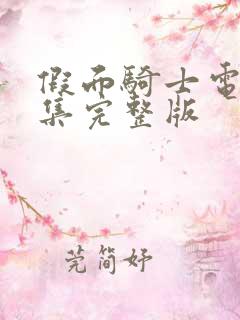 假面騎士電
集完整版
莞简妤